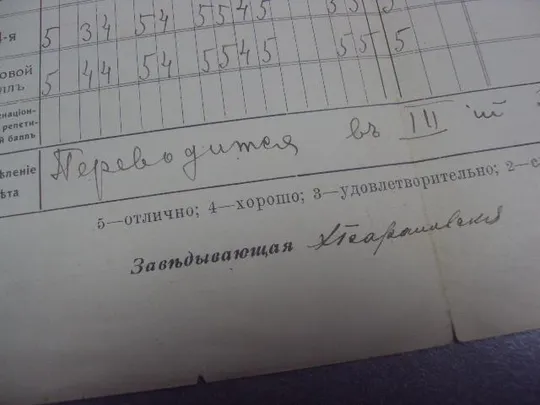 -я 5 3 4 5 4 5 5 4 5 5 5 5
овой
ллъ 5 4 4 5 4 5 5 4 5 5 5 5
націон-
репети-
й баллъ
ѣленіе
ѣта Переводится въ III ій
5—отлично; 4—хорошо; 3—удовлетворительно; 2—
Завѣдывающая